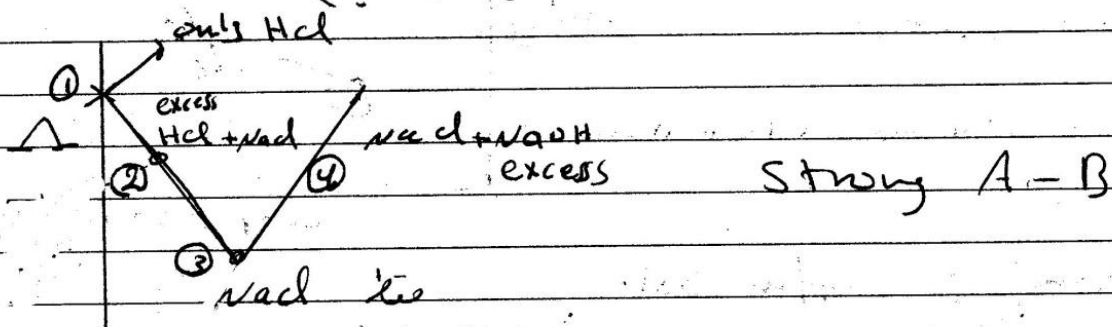 only Hcl
①
excess
Λ Hcl + Nacl Nacl + NaOH
② ④ excess Strong A - B
③
Nacl